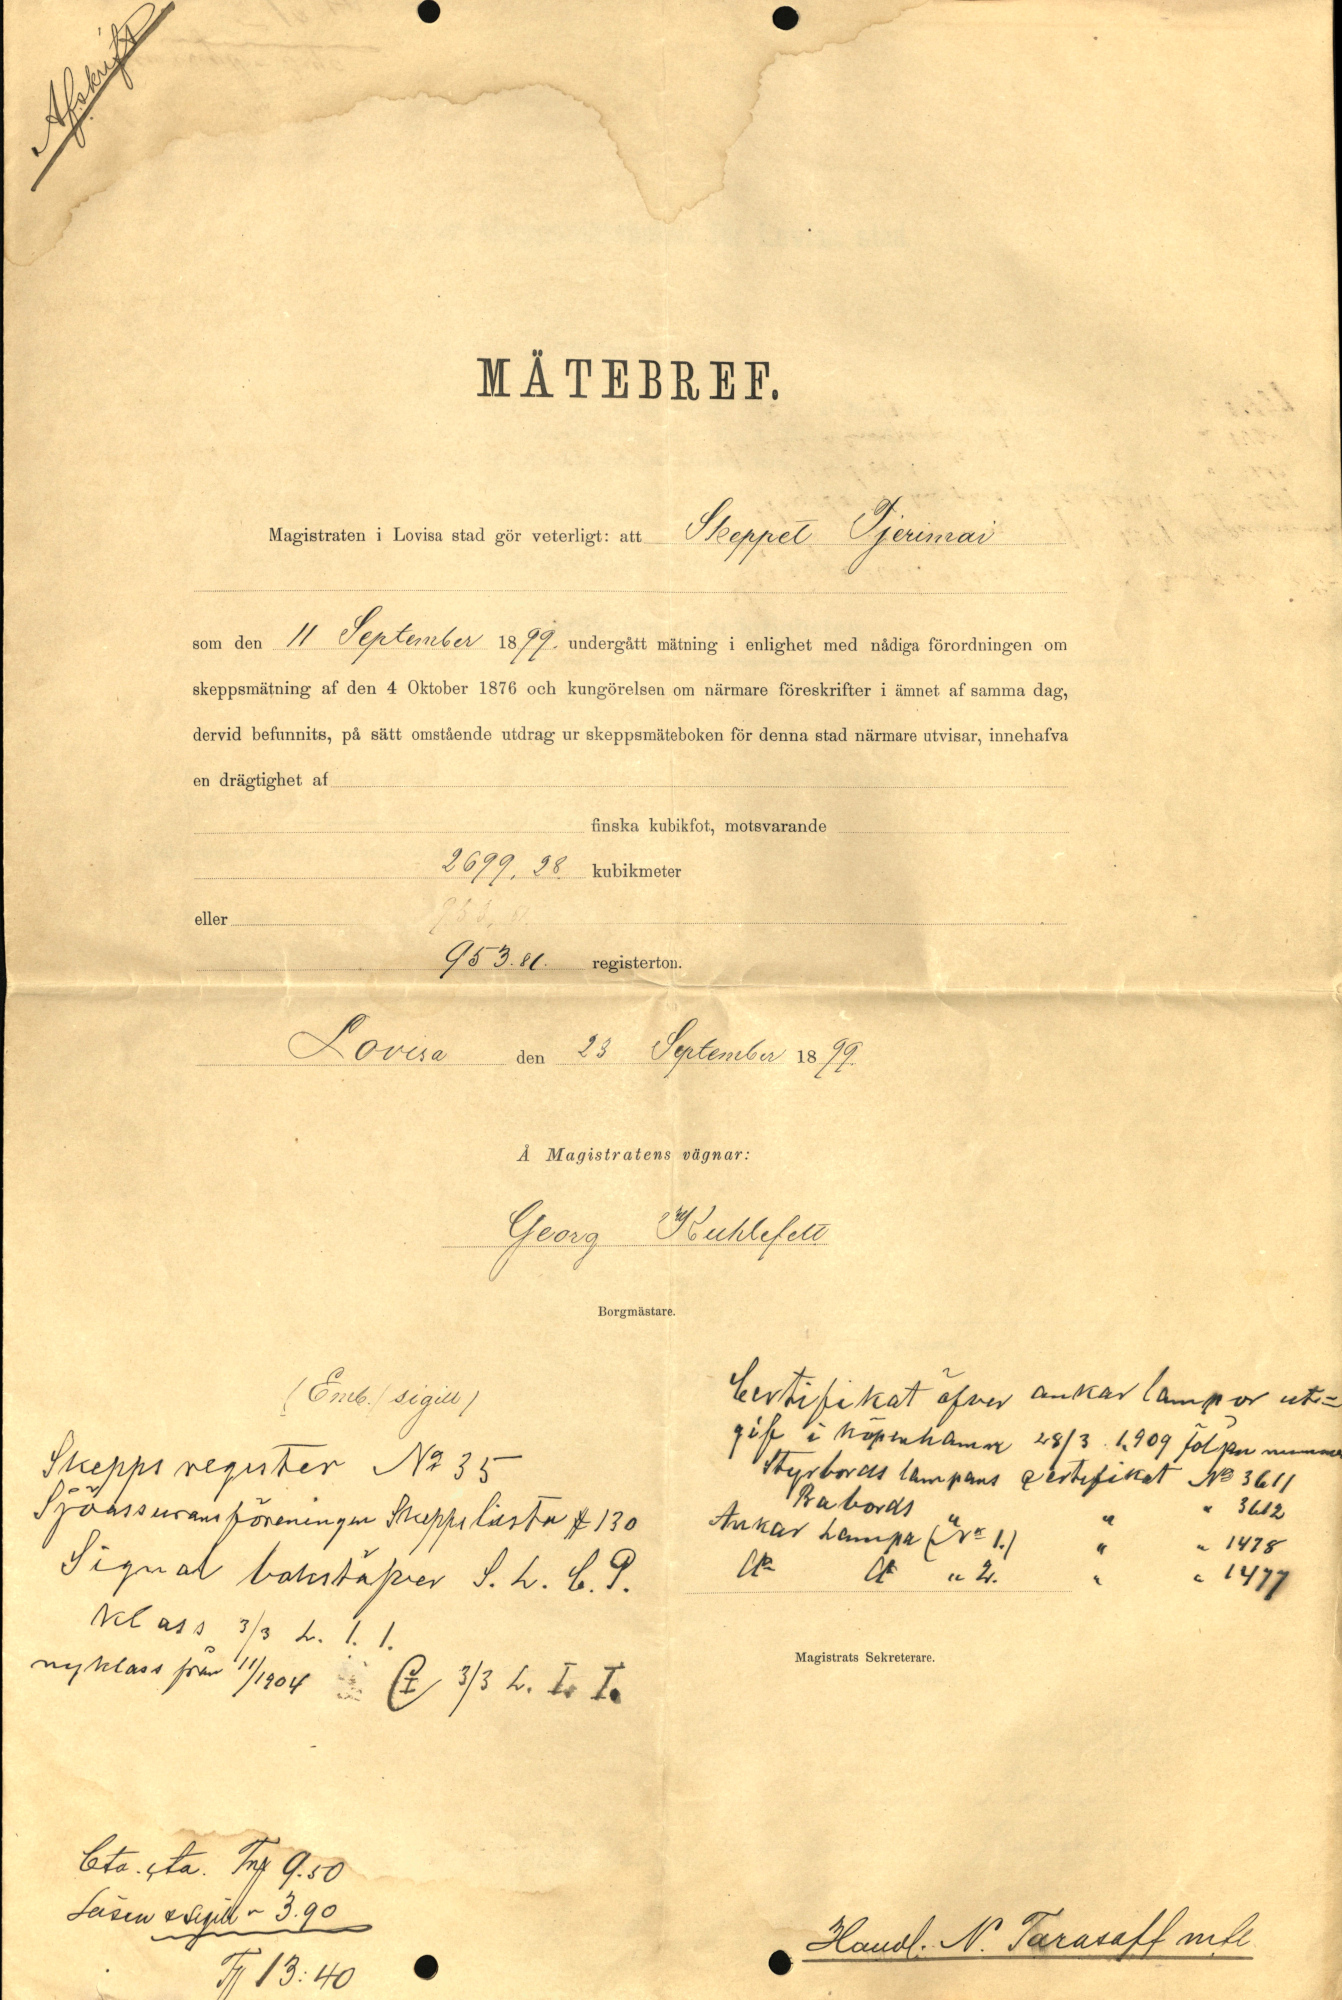 Afskrift
MÄTEBREF.
Magistraten i Lovisa stad gör veterligt: att Skeppet Fjerimai
som den 11 September 1899. undergått mätning i enlighet med nådiga förordningen om
skeppsmätning af den 4 Oktober 1876 och kungörelsen om närmare föreskrifter i ämnet af samma dag,
dervid befunnits, på sätt omstående utdrag ur skeppsmäteboken för denna stad närmare utvisar, innehafva
en drägtighet af
finska kubikfot, motsvarande
2699,28 kubikmeter
eller
953.81. registerton.
Lovisa den 23 September 1899.
Å Magistratens vägnar:
Georg Kuhlefelt
Borgmästare.
(Emb. sigill)
Skepps register No 35
Sjöassuransföreningen Skeppslista # 130
Signal bokstäfver S. L. C. P.
klass 3/3 L. 1. 1.
ny klass från 11/1904 3/3 L. I. I.
Certifikat öfver ankar lampor ut=
gif i Köpenhamn 28/3 1909 följan nummer
Styrbords lampans certifikat No 3611
Babords " " 3612
Ankar Lampa (No 1.) " " 1478
" 2. " " 1477
Magistrats Sekreterare.
9.50
Lösen & sigill " 3.90
13:40
Handl. N. Tarasoff m.fl.